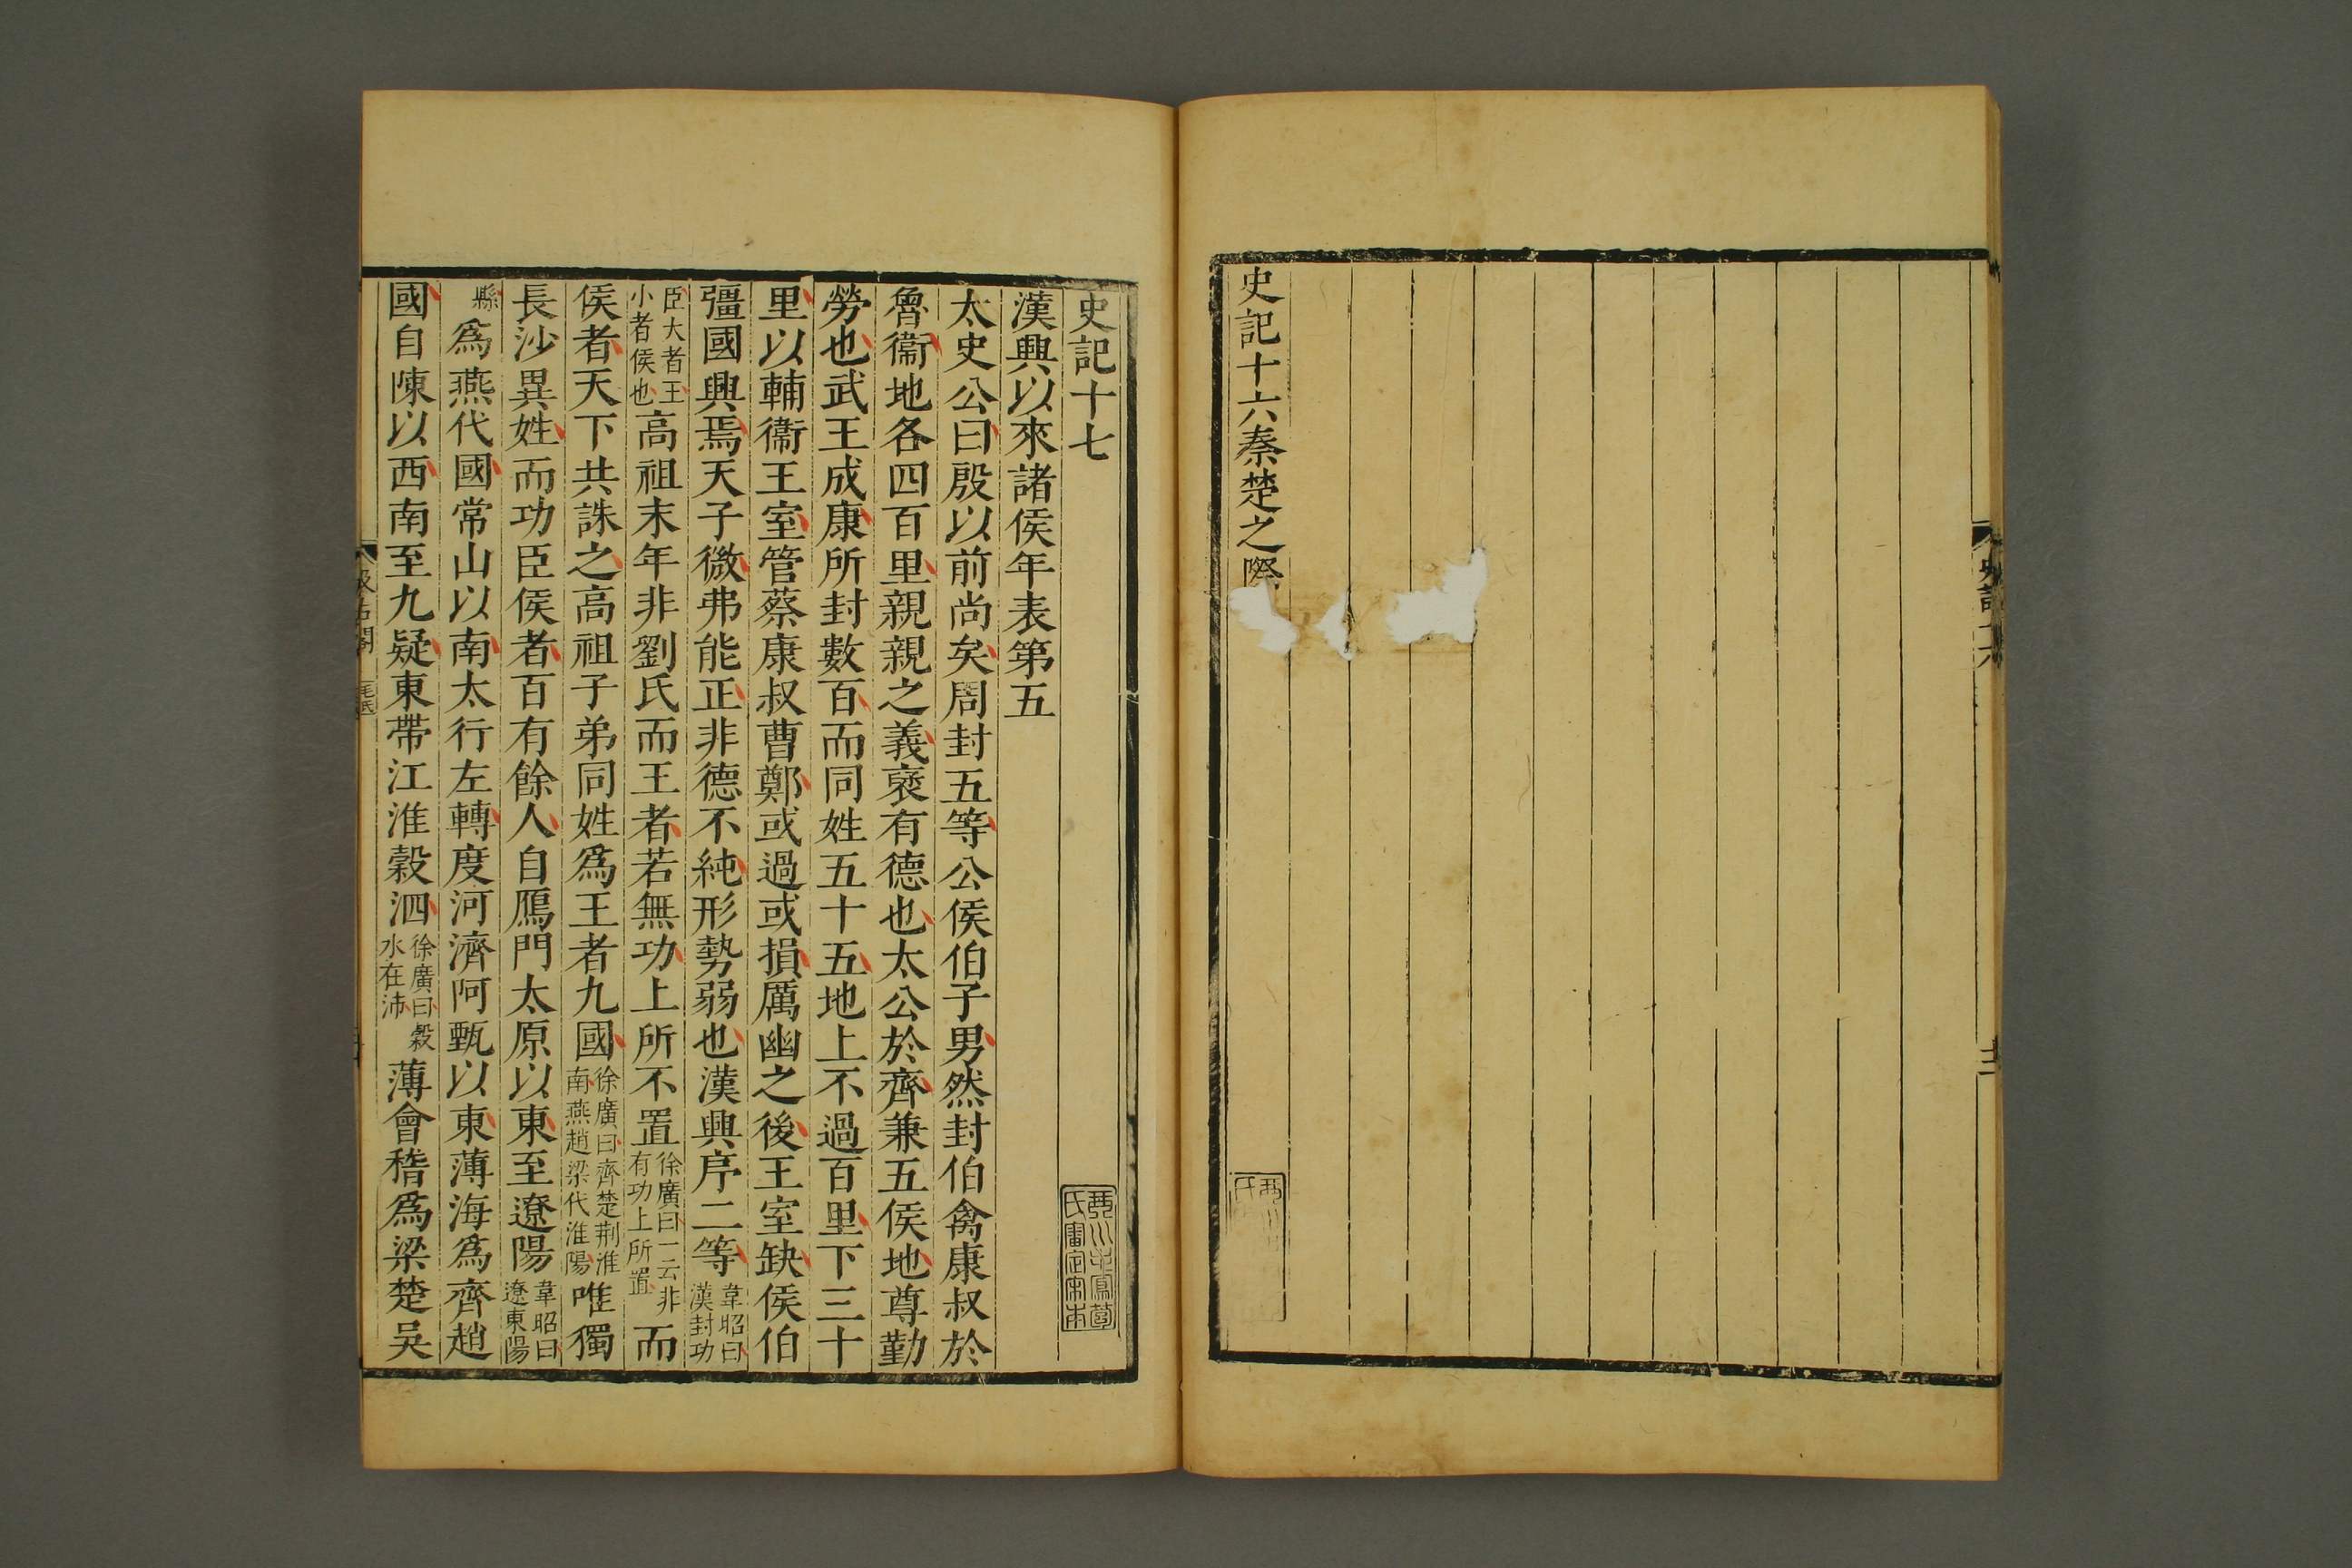 史記十六秦楚之際
史記十七
漢興以來諸侯年表第五
太史公曰殷以前尚矣周封五等公侯伯子男然封伯禽康叔於
魯衞地各四百里親親之義襃有德也太公於齊兼五侯地尊勤
勞也武王成康所封數百而同姓五十五地上不過百里下三十
里以輔衞王室管蔡康叔曹鄭或過或損厲幽之後王室缺侯伯
彊國興焉天子微弗能正非德不純形勢弱也漢興序二等韋昭曰漢封功
臣大者王小者侯也高祖末年非劉氏而王者若無功上所不置徐廣曰一云非有功上所置而
侯者天下共誅之高祖子弟同姓爲王者九國徐廣曰齊楚荆淮南燕趙梁代淮陽唯獨
長沙異姓而功臣侯者百有餘人自鴈門太原以東至遼陽韋昭曰遼東陽
縣爲燕代國常山以南太行左轉度河濟阿甄以東薄海爲齊趙
國自陳以西南至九疑東帶江淮穀泗徐廣曰穀水在沛薄會稽爲梁楚吳
汲古閣
毛氏